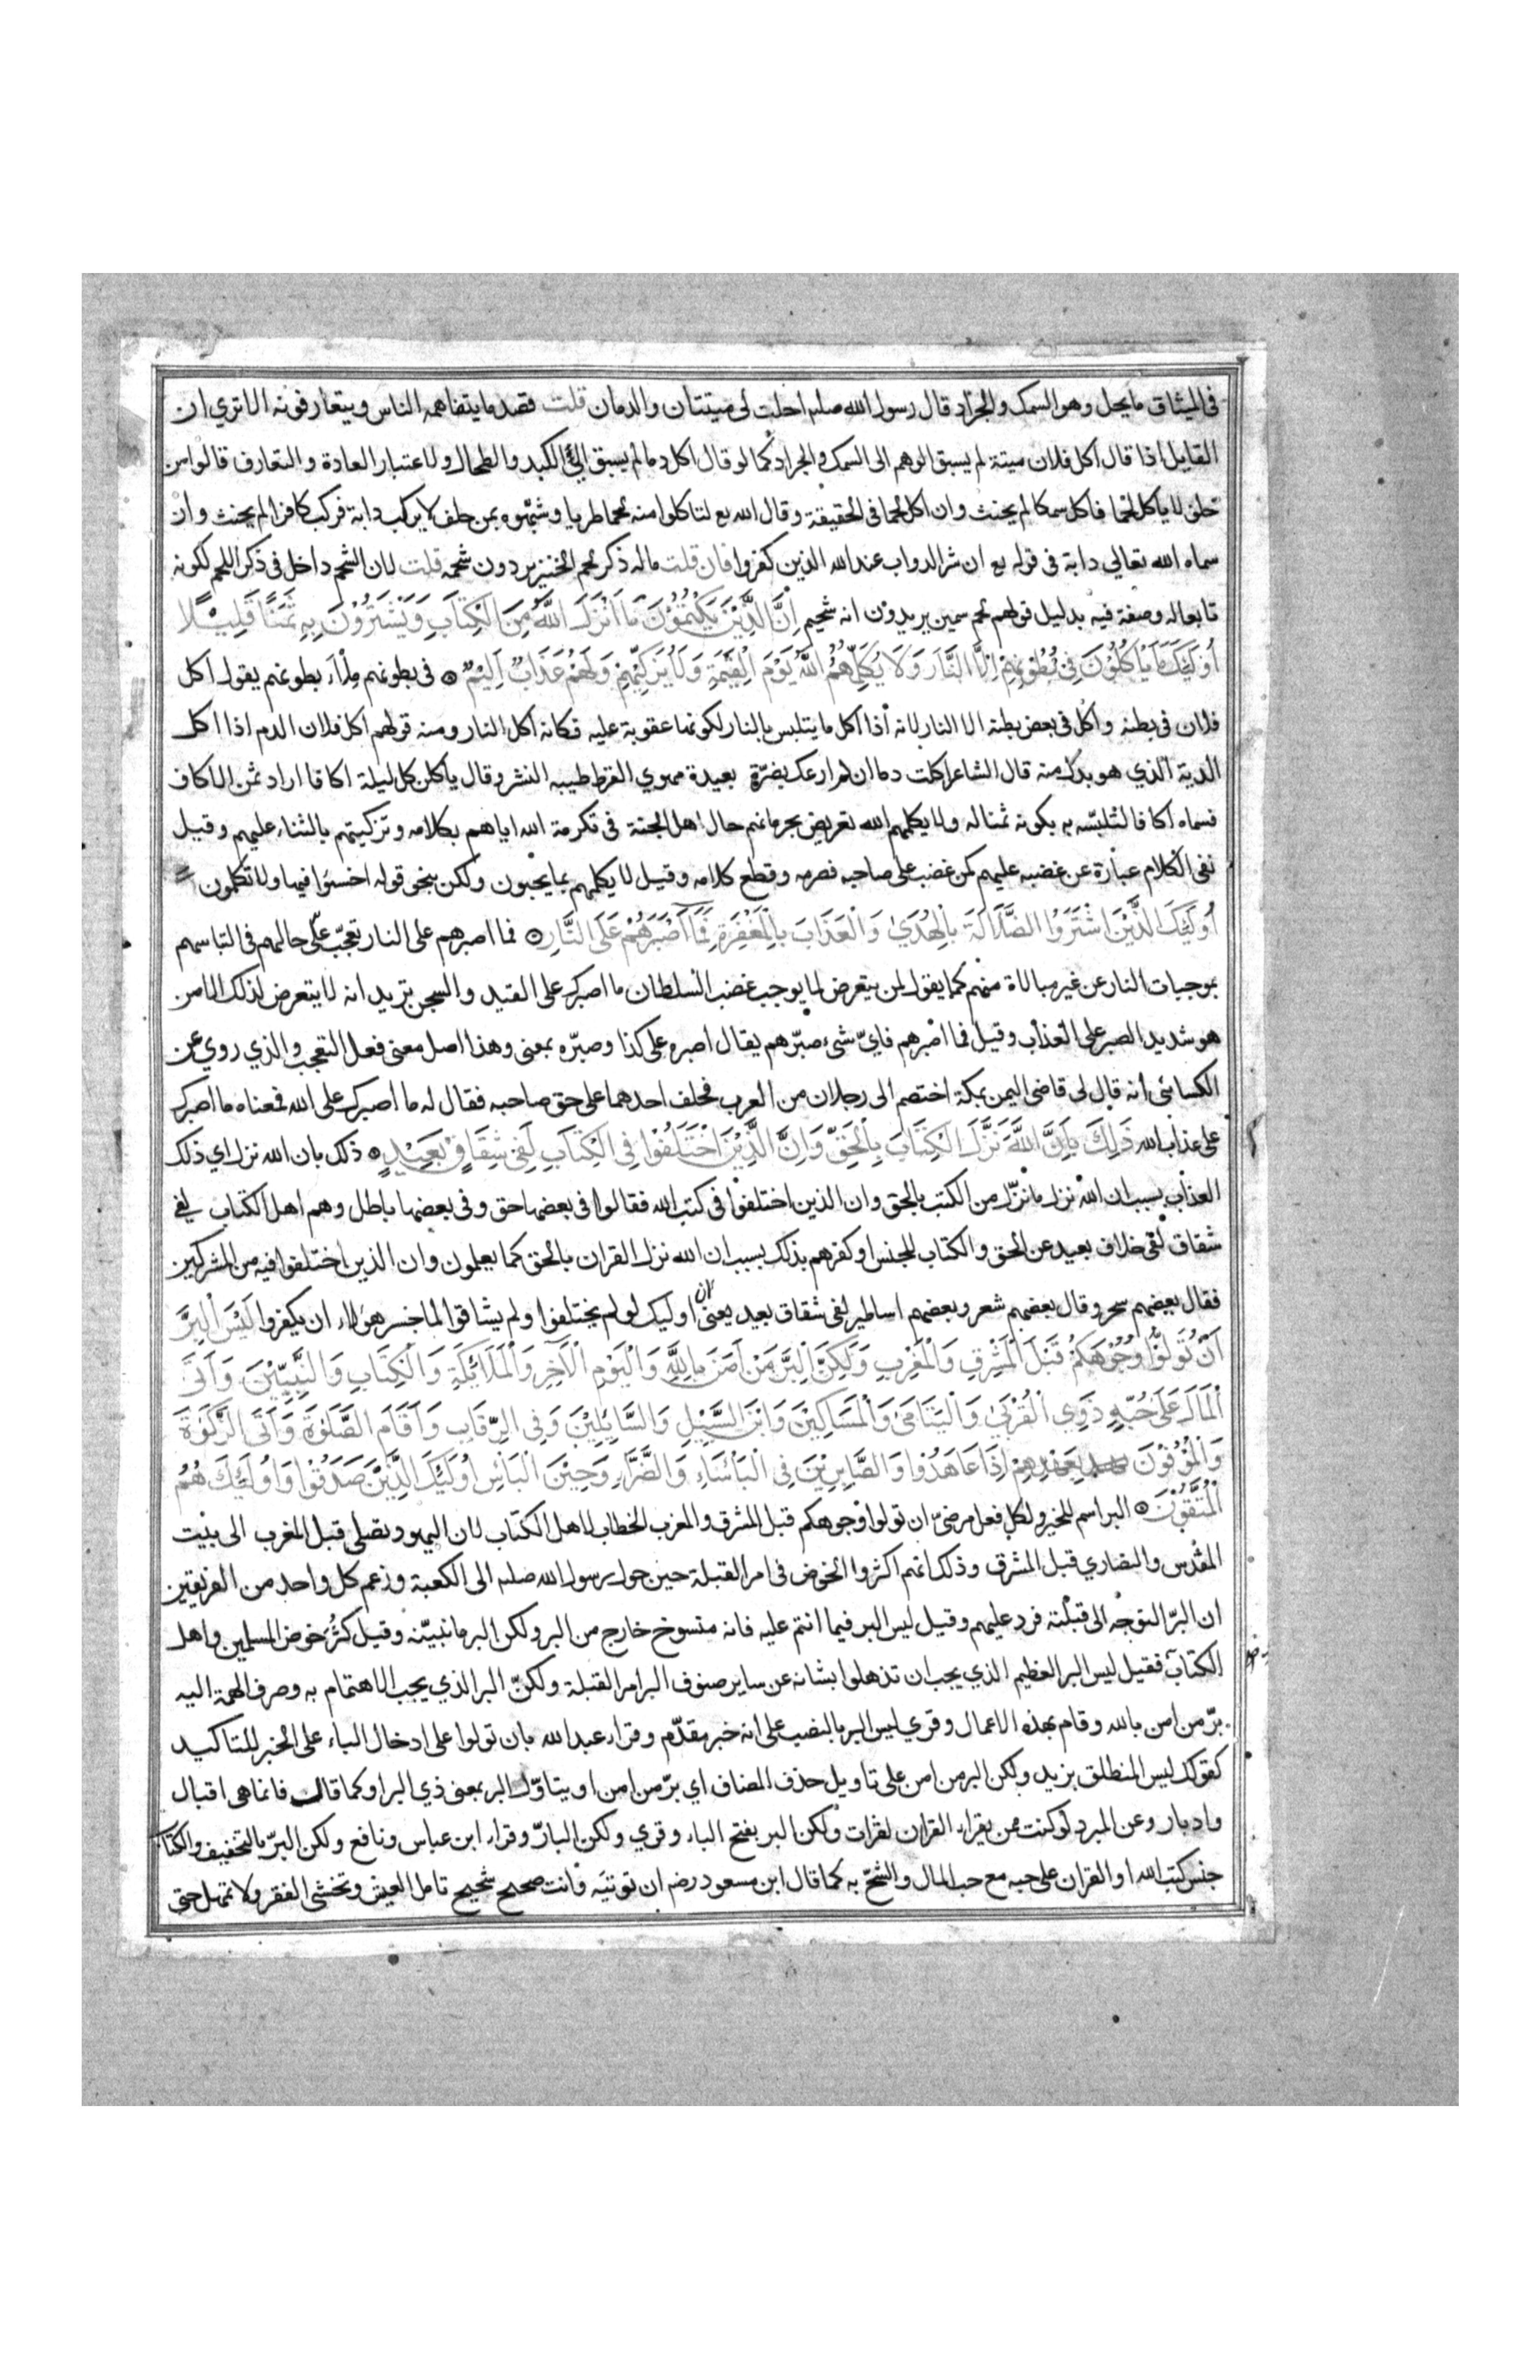 في الميثاق ما يحل وهو السمك والجراد قال رسول الله صلم احلت لى ميتتان والدمان قلت قصد ما يتفاهمه الناس ويتعارفونه الا تري ان
القايل اذا قال اكل فلان ميتة لم يسبق الوهم الى السمك والجراد كما لو قال اكل دما لم يسبق الى الكبد والطحال ولاعتبار العادة والتعارف قالوا من
حلف لا ياكل لحما فاكل سمكا لم يحنث وان اكل لحما فى الحقيقة وقال الله تع لتاكلوا منه لحما طريا وشبهوه بمن حلف لا يركب دابة فركب كافرا لم يحنث وان
سماه الله تعالي دابة فى قوله تع ان شر الدواب عند الله الذين كفروا فان قلت ماله ذكر لحم الخنزير دون شحمه قلت لان الشحم داخل فى ذكر اللحم لكونه
تابعاله وصفة فيه بدليل قولهم لحم سمين يريدون انه شحيم اِنَّ الَّذِيْنَ يَكْتُمُوْنَ مَا اَنْزَلَ اللهُ مِنَ الْكِتَابِ وَيَشْتَرُوْنَ بِهِ ثَمَنًا قَلِيْلًا
اُولَئِكَ مَا يَاْكُلُوْنَ فِى بُطُوْنِهِمْ اِلَّا النَّارَ وَلَا يُكَلِّمُهُمُ اللهُ يَوْمَ الْقِيٰمَةِ وَلَا يُزَكِّيْهِمْ وَلَهُمْ عَذَابٌ اَلِيْمٌ ۞ فى بطونهم ملأ بطونهم يقول اكل
فلان فى بطنه واكل فى بعض بطنه الا النار لانه اذا اكل ما يتلبس بالنار لكونها عقوبة عليه فكانه اكل النار ومنه قولهم اكل فلان الدم اذا اكل
الدية الذي هو بدل منه قال الشاعر اكلت دما ان لم ارعك بضرة بعيدة مهوي القرط طيبه النشر وقال ياكلن كل ليلة اكافا اراد ثمن الاكاف
فسماه اكافا لتلبسه به بكونه ثمنا له ولا يكلمهم الله تعريض بحرمانهم حال اهل الجنة فى تكرمة الله اياهم بكلامه وتزكيتهم بالثناء عليهم وقيل
نفى الكلام عبارة عن غضبه عليهم كمن غضب على صاحبه فصرمه وقطع كلامه وقيل لا يكلمهم بما يحبون ولكن بنحو قوله اخسئوا فيها ولا تكلمون
اُولَئِكَ الَّذِيْنَ اشْتَرَوُا الضَّلَالَةَ بِالْهُدَيٰ وَالْعَذَابَ بِالْمَغْفِرَةِ فَمَا اَصْبَرَهُمْ عَلَى النَّارِ ۞ فما اصبرهم على النار تعجب على حالهم فى التباسهم
بموجبات النار عن غير مبالاة منهم كما يقول لمن يتعرض لما يوجب غضب السلطان ما اصبرك على القيد والسجن تريد انه لا يتعرض لذلك الا من
هو شديد الصبر على العذاب وقيل فما اصبرهم فاىّ شىء صبّرهم يقال اصبره على كذا وصبّره بمعنى وهذا اصل معنى فعل التعجب والذي روي عن
الكسائى انه قال لى قاضى اليمن بمكة اختصم الى رجلان من العرب فحلف احدهما على حق صاحبه فقال له ما اصبرك على الله فمعناه ما اصبرك
على عذاب الله ذَلِكَ بِاَنَّ اللهَ نَزَّلَ الْكِتَابَ بِالْحَقِّ وَاِنَّ الَّذِيْنَ اخْتَلَفُوْا فِى الْكِتَابِ لَفِى شِقَاقٍ بَعِيْدٍ ۞ ذلك بان الله نزل اي ذلك
العذاب بسبب ان الله نزل ما نزّل من الكتب بالحق وان الذين اختلفوا فى كتب الله فقالوا فى بعضها حق وفى بعضها باطل وهم اهل الكتاب لفى
شقاق لفى خلاف بعيد عن الحق والكتاب للجنس او كفرهم بذلك بسبب ان الله نزل القران بالحق كما يعلمون وان الذين اختلفوا فيه من المشركين
فقال بعضهم سحر وقال بعضهم شعر وبعضهم اساطير لفى شقاق بعيد يعنى ان اوليك لو لم يختلفوا ولم يشاقوا لما جسر هؤلاء ان يكفروا لَيْسَ الْبِرَّ
اَنْ تُوَلُّوْا وُجُوْهَكُمْ قِبَلَ الْمَشْرِقِ وَالْمَغْرِبِ وَلَكِنَّ الْبِرَّ مَنْ اٰمَنَ بِاللهِ وَالْيَوْمِ الْاٰخِرِ وَالْمَلَائِكَةِ وَالْكِتَابِ وَالنَّبِيِّيْنَ وَاٰتَى
الْمَالَ عَلَى حُبِّهِ ذَوِي الْقُرْبَىٰ وَالْيَتَامَىٰ وَالْمَسَاكِيْنَ وَابْنَ السَّبِيْلِ وَالسَّائِلِيْنَ وَفِى الرِّقَابِ وَاَقَامَ الصَّلٰوةَ وَاٰتَى الزَّكٰوةَ
وَالْمُوْفُوْنَ بِعَهْدِهِمْ اِذَا عَاهَدُوْا وَالصَّابِرِيْنَ فِى الْبَاْسَاءِ وَالضَّرَّاءِ وَحِيْنَ الْبَاْسِ اُولَئِكَ الَّذِيْنَ صَدَقُوْا وَاُولَئِكَ هُمُ
الْمُتَّقُوْنَ ۞ البر اسم للخير ولكل فعل مرضىّ ان تولوا وجوهكم قبل المشرق والمغرب الخطاب لاهل الكتاب لان اليهود تصلى قبل المغرب الى بيت
المقدس والنصاري قبل المشرق وذلك انهم اكثروا الخوض فى امر القبلة حين حول رسول الله صلم الى الكعبة وزعم كل واحد من الفريقين
ان البرّ التوجه الى قبلته فرد عليهم وقيل ليس البر فيما انتم عليه فانه منسوخ خارج من البر ولكن البر ما نبيّنه وقيل كثر خوض المسلمين واهل
الكتاب فقيل ليس البر العظيم الذي يجب ان تذهلوا بشانه عن ساير صنوف البر امر القبلة ولكنّ البر الذي يجب الاهتمام به وصرف الهمة اليه
برّ من امن بالله وقام بهذه الاعمال وقري ليس البر بالنصب على انه خبر مقدّم وقراء عبد الله بان تولوا على ادخال الباء على الخبر للتاكيد
كقولك ليس المنطلق بزيد ولكن البر من امن على تاويل حذف المضاف اي برّ من امن او يتاوّل البر بمعنى ذي البر او كما قالت فانما هى اقبال
وادبار وعن المبرد لو كنت ممن يقراء القران لقرات ولكن البر بفتح الباء وقري ولكن البارّ وقراء ابن عباس ونافع ولكن البرّ بالتخفيف والكتاب
جنس كتب الله او القران على حبه مع حب المال والشحّ به كما قال ابن مسعود رضم ان توتيه وانت صحيح شحيح تامل العيش وتخشى الفقر ولا تمهل حتى